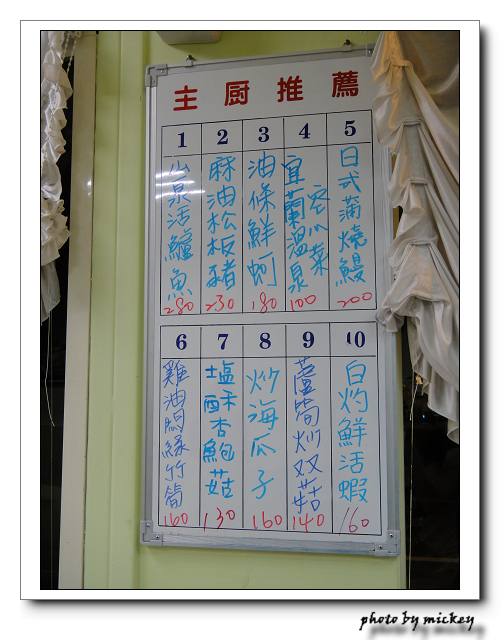 主厨推薦
1
山泉活鱸魚
280
2
麻油松板豬
230
3
油條鮮蚵
180
4
宜蘭溫泉空心菜
100
5
日式蒲燒鰻
200
6
雞油悶綠竹筍
160
7
塩酥杏鮑菇
130
8
炒海瓜子
160
9
蘆筍炒双菇
140
10
白灼鮮活蝦
160
photo by mickey